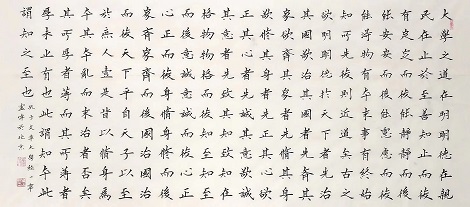 大學之道在明明德在親
民在止於至善知止而后
有定定而后能靜靜而后
能安安而后能慮慮而后
能得物有本末事有終始
知所先後則近道矣古之
欲明明德於天下者先治
其國欲治其國者先齊其
家欲齊其家者先脩其身
欲脩其身者先正其心欲
正其心者先誠其意欲誠
其意者先致其知致知在
格物物格而后知至知至
而后意誠意誠而后心正
心正而后身脩身脩而后
家齊家齊而后國治國治
而后天下平自天子以至
於庶人壹是皆以脩身為
本其本亂而末治者否矣
其所厚者薄而其所薄者
厚未之有也此謂知本此
謂知之至也